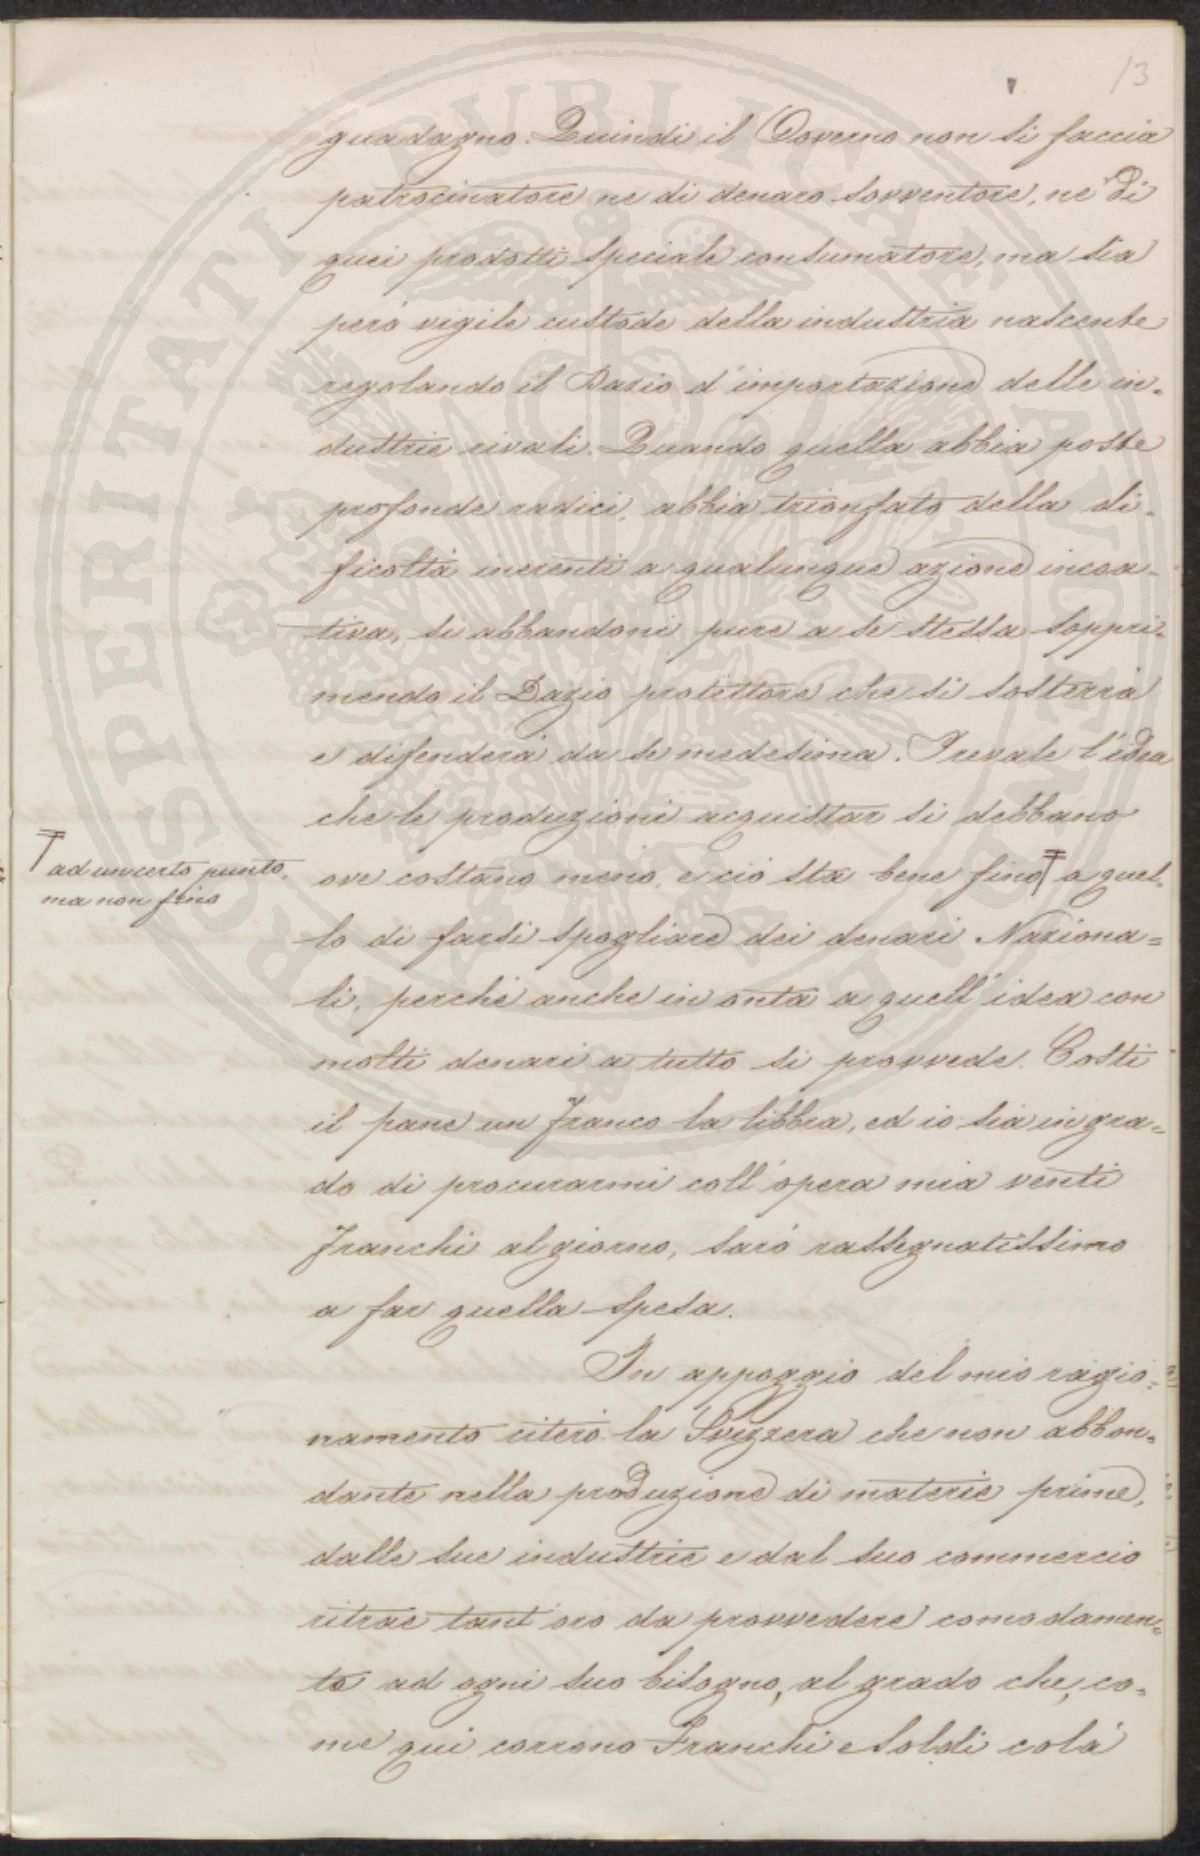 13
guadagno. Quindi il Governo non si faccia
patrocinatore ne di denaro sovventore, ne di
quei prodotti speciale consumatore, ma sia
però vigile custode della industria nascente
regolando il Dazio d'importazione delle in=
dustrie rivali. Quando quella abbia poste
profonde radici, abbia trionfato della di=
ficoltà inerenti a qualunque azione incoa=
tiva, si abbandoni pure a se stessa soppri=
mendo il Dazio protettore che si sosterrà
e difenderà da se medesima. Prevale l'idea
che le produzioni acquistar si debbano
ove costano meno, e ciò sta bene fino a quel=
ad un certo punto,
ma non fino
lo di farsi spogliare dei denari Naziona=
li, perchè anche in onta a quell'idea con
molti denari a tutto si provvede. Costi
il pane un Franco la libbra, ed io sia in gra=
do di procurarmi coll'opera mia venti
Franchi al giorno, sarò rassegnatissimo
a far quella spesa.
In appoggio del mio ragio=
namento citerò la Svizzera che non abbon=
dante nella produzione di materie prime,
dalle sue industrie e dal suo commercio
ritrae tant'oro da provvedere comodamen=
te ad ogni suo bisogno, al grado che, co=
me qui corrono Franchi e Soldi colà
PROSPERITATI PVBLICAE AVGENDAE